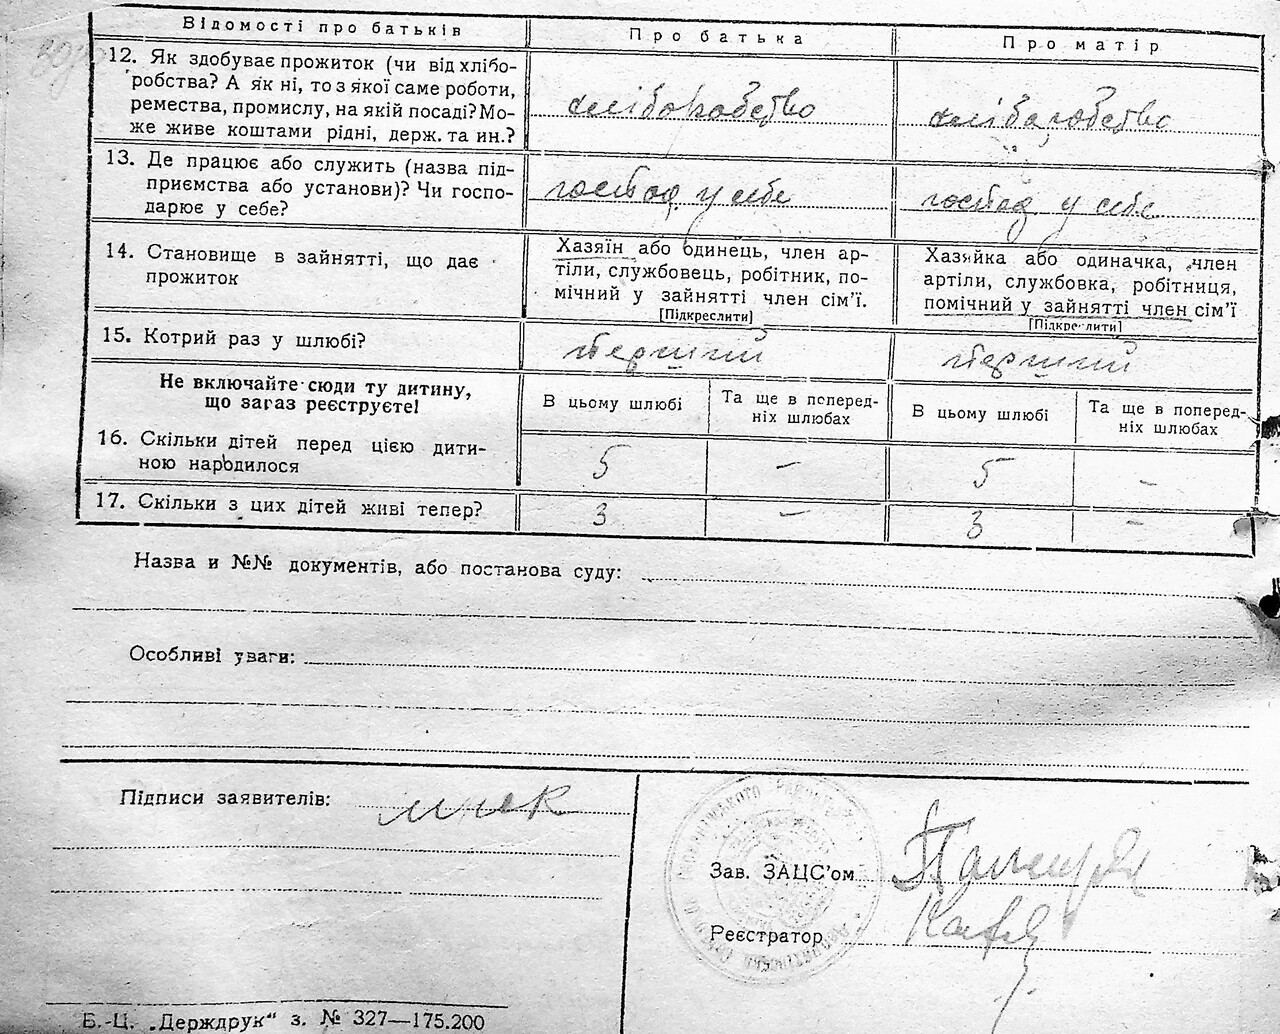 Відомості про батьків
Про батька
Про матір
12. Як здобуває прожиток (чи від хлібо-
робства? А як ні, то з якої саме роботи,
ремества, промислу, на якій посаді? Мо-
же живе коштами рідні, держ. та ин.?
хліборобство
хліборобство
13. Де працює або служить (назва під-
приємства або установи)? Чи госпо-
дарює у себе?
господ у себе
господ у себе
14. Становище в зайнятті, що дає
прожиток
Хазяїн або одинець, член ар-
тіли, службовець, робітник, по-
мічний у зайнятті член сім’ї.
[Підкреслити]
Хазяйка або одиначка, член
артіли, службовка, робітниця,
помічний у зайнятті член сім’ї
[Підкреслити]
15. Котрий раз у шлюбі?
перший
перший
Не включайте сюди ту дитину,
що загаз реєструєте!
В цьому шлюбі
Та ще в поперед-
ніх шлюбах
В цьому шлюбі
Та ще в поперед-
ніх шлюбах
16. Скільки дітей перед цією дити-
ною народилося
5
–
5
–
17. Скільки з цих дітей живі тепер?
3
–
3
–
Назва и №№ документів, або постанова суду:
Особливі уваги:
Підписи заявителів:
Зав. ЗАЦС’ом
Реєстратор
Б.-Ц. „Держдрук“ з. № 327—175.200